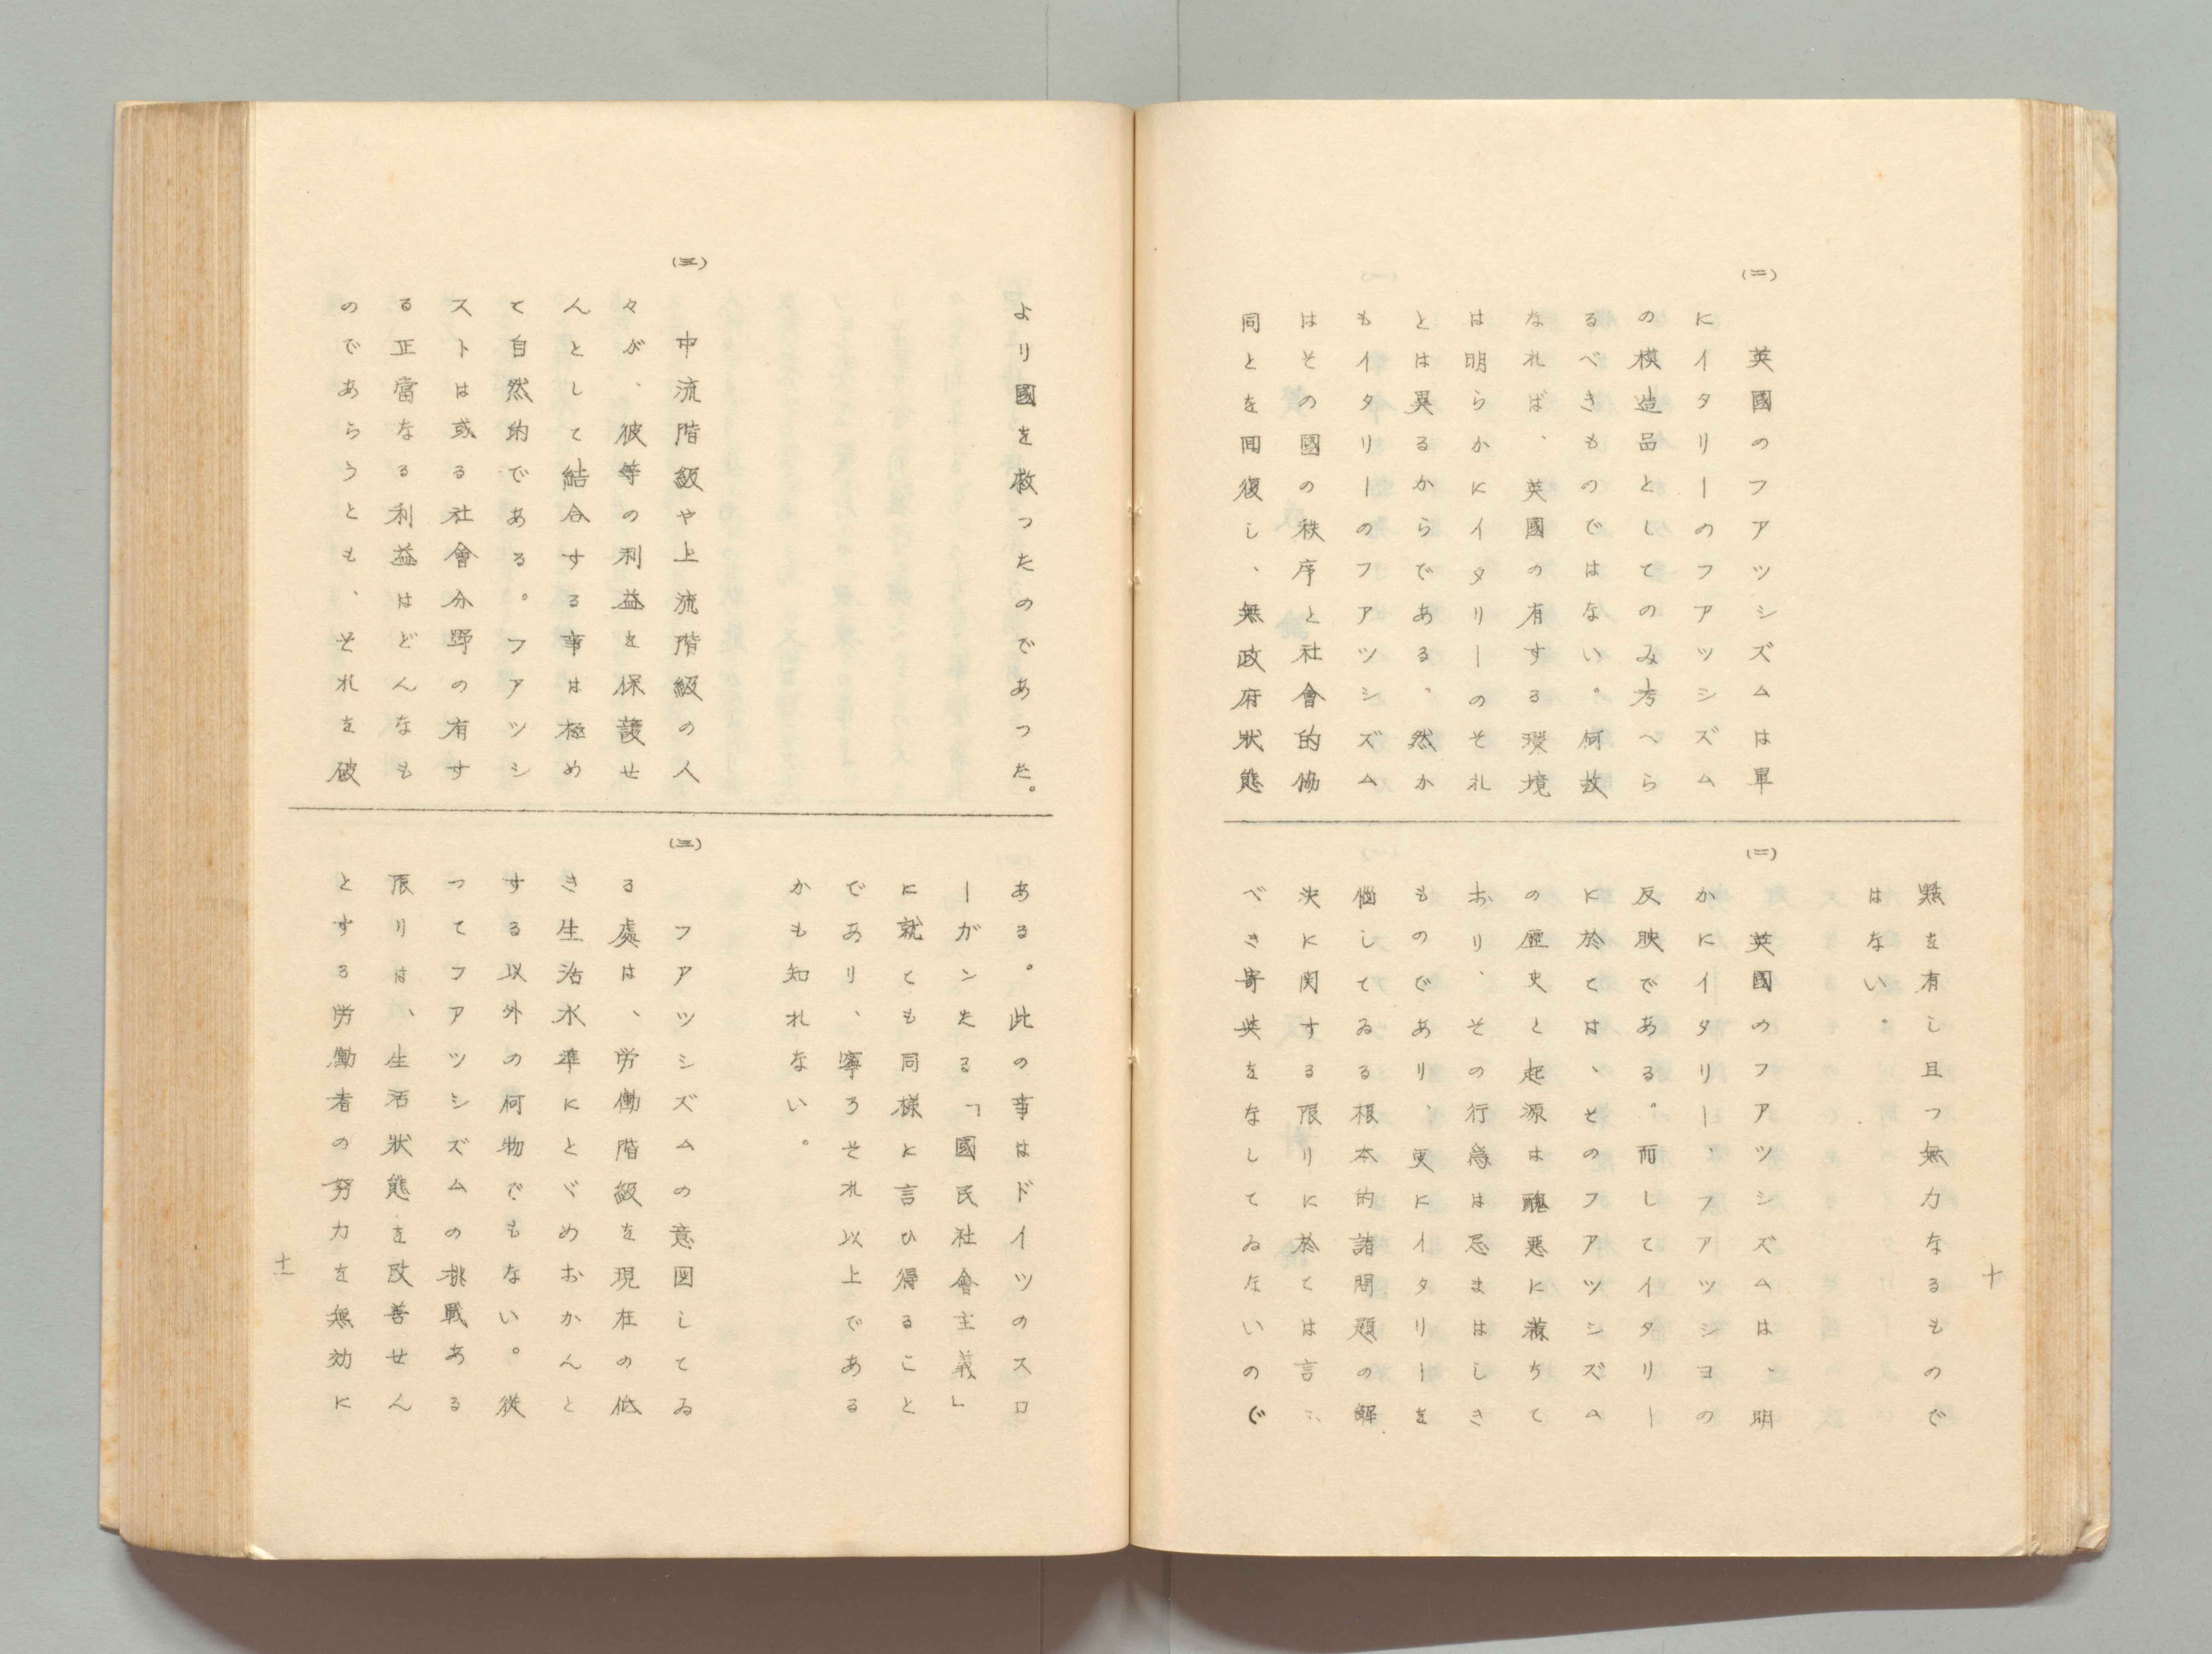 十
(二)
英國のフアツシズムは單
にイタリーのフアツシズム
の模造品としてのみ考へら
るべきものではない。何故
なれば、英國の有する環境
は明らかにイタリーのそれ
とは異るからである、然か
もイタリーのフアツシズム
はその國の秩序と社會的協
同とを囘復し、無政府狀態
點を有し且つ無力なるもので
はない。
(二)
英國のフアツシズムは、明
かにイタリー、フアツシヨの
反映である。而してイタリー
に於ては、そのフアツシズム
の歴史と起源は醜悪に滿ちて
おり、その行爲は忌まはしき
ものであり、更にイタリーを
惱してゐる根本的諸問題の解
決に関する限りに於ては言ふ
べき寄與をなしてゐないので
より國を救つたのであつた。
(三)
中流階級や上流階級の人
々が、彼等の利益を保護せ
んとして結合する事は極め
て自然的である。フアツシ
ストは或る社會分野の有す
る正當なる利益はどんなも
のであらうとも、それを破
ある。此の事はドイツのスロ
ーガンたる「國民社會主義」
に就ても同様に言ひ得ること
であり、寧ろそれ以上である
かも知れない。
(三)
フアツシズムの意図してゐ
る處は、労働階級を現在の低
き生活水準にとゞめおかんと
する以外の何物でもない。從
つてフアツシズムの挑戰ある
限りは、生活狀態を改善せん
とする労働者の努力を無効に
十一